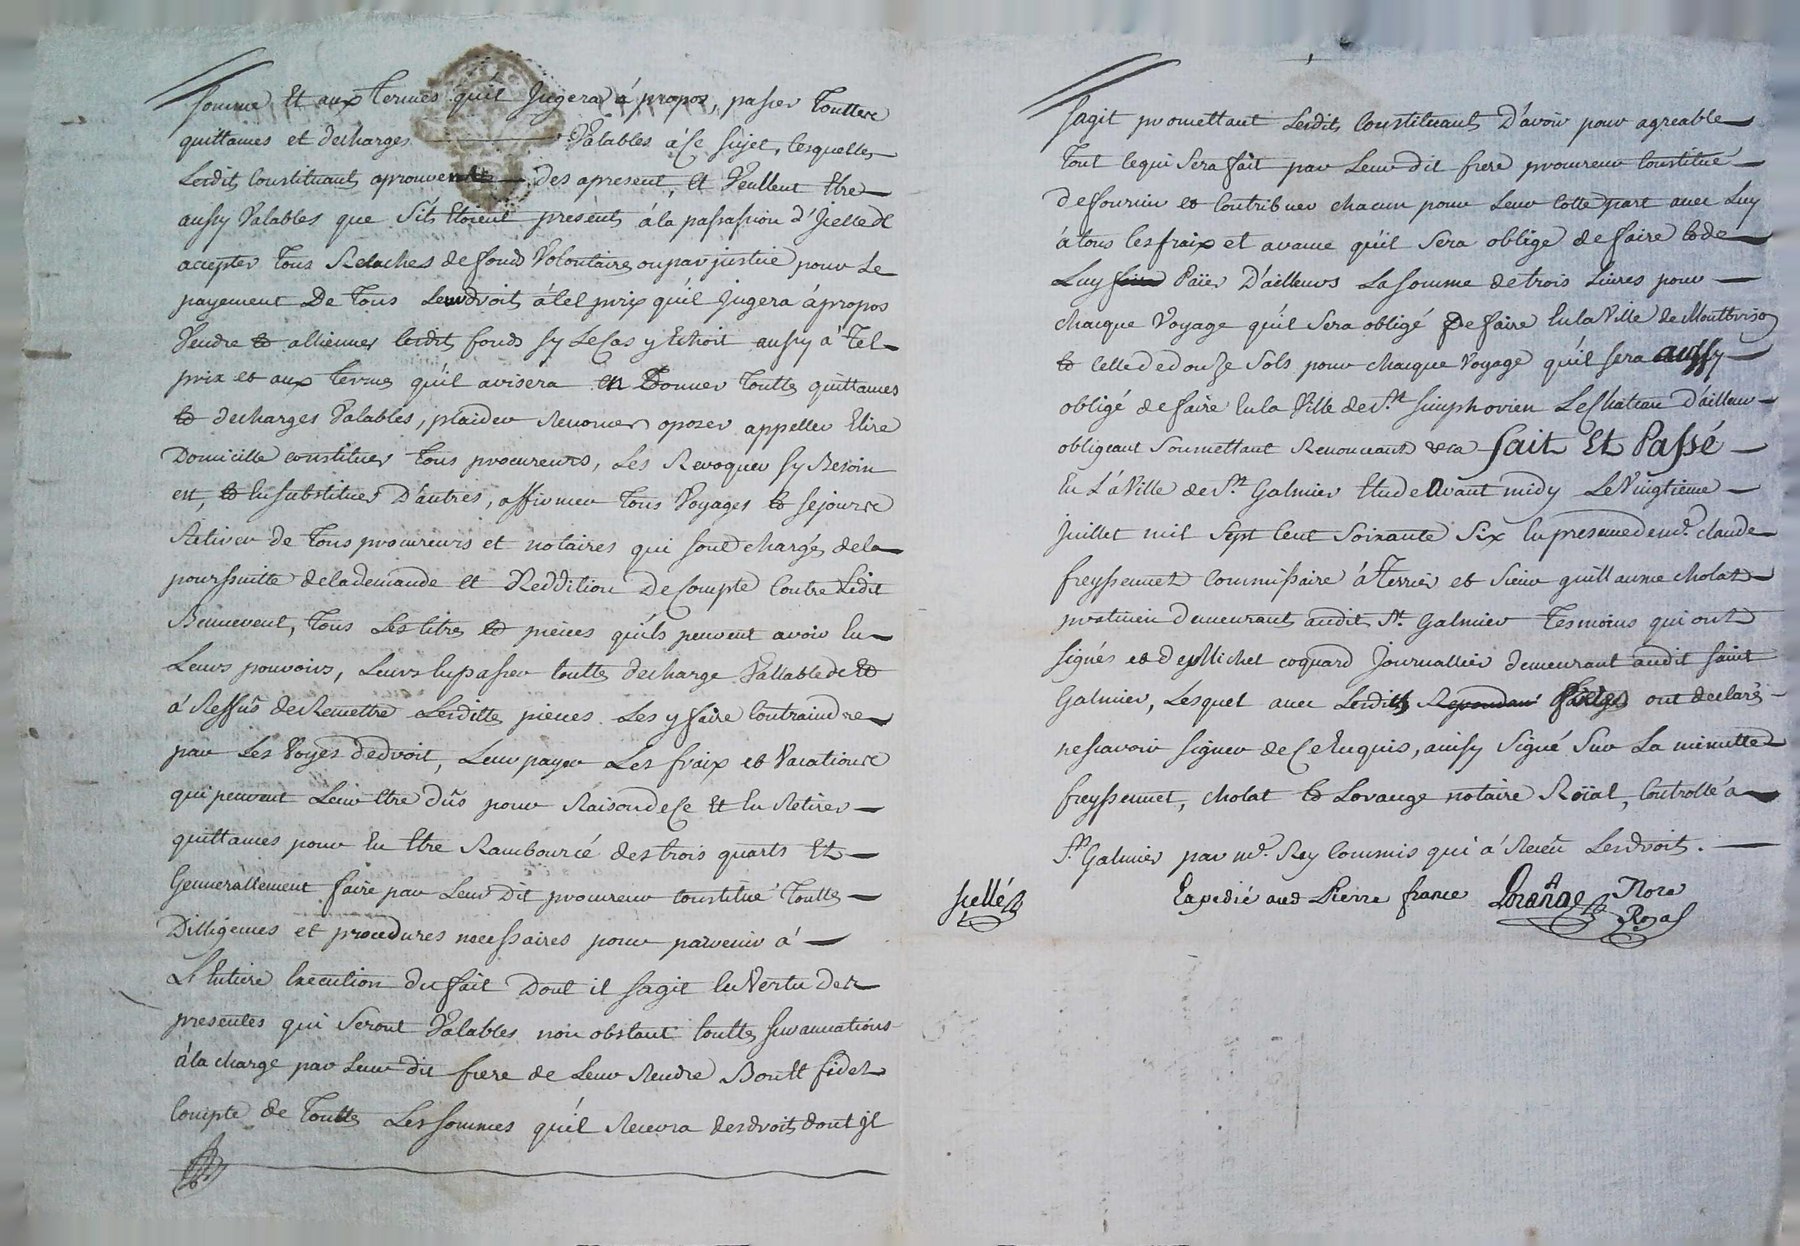 somme Et aux termes qu'il Jugera á propos, passer Touttes
quittances et decharges Valables á Ce sujet, lesquelles
Lesdits Constituants aprouvent Des apresent, Et Veullent Etre
aussy Valables que S'ils Etoient presents á la passassion d'Jcelled
accepter Tous Relaches de fonds Volontaires ou par justice pour Le
payement De Tous Leurs droits á tel prix qu'il Jugera á propos
Vendre Et alliener lesdits fonds sy Le Cas y Echoit aussy á Tel
prix et aux termes qu'il avisera En Donner Toutte quittances
Et decharges Valables, plaider Renoncer oposer appeller Elire
Domicille constituer Tous procureurs, Les Revoquer sy Besoin
est, Et En substituer D'autres, affirmer Tous Voyages Et sejours
Retirer de Tous procureurs et notaires qui sont chargés de la
poursuitte de la demande et Reddition De Compte Contre Ledit
Bennevent, Tous Les titres Et pieces qu'ils peuvent avoir En
Leurs pouvoirs, Leurs En passer toutte decharge Vallable Et
á Reffus de Remettre Lesdittes pieces Les y faire Contraindre
par Les Voyes de droit, Leur payer Les fraix et Vacations
qui peuvent Leur Etre dûs pour Raison de Ce Et En Retirer
quittances pour En Etre Rambourcé des trois quarts Et
Gennerallement faire par Leur Dit procureur Constitué Toutte
Dilligences et procedures necessaires pour parvenir á
L'Entiere Execution du fait Dont il sagit En Vertu des
presentes qui Seront Valables non obstant toutte surannations
á la charge par Leur dit frere de Leur Rendre Bon Et fidel
Compte de Toutte Les sommes qu'il Recevra des droits dont Jl
sagit promettant Lesdits Constituants D'avoir pour agreable
Tout Ce qui Sera fait par Leur dit frere procureur Constitué
De fournir et Contribuer chacun pour Leur Cotte part avec Luy
á tous les fraix et avance qu'il Sera obligé de faire Et de
Luy Païer D'ailleurs La somme de trois Livres pour
chaque Voyage qu'il Sera obligé De faire En la Ville de Montbrison
Et Celle de douze Sols pour chaque Voyage qu'il sera aussy
obligé de faire En la Ville de St. Simphorien Le Chateau D'ailleur
obligeant Soumettant Renonceant &ca fait Et Passé
En La Ville de St. Galmier Etude avant midy Le Vingtieme
Juillet mil Sept Cent Soixante Six En presence de me. claude
freyssennet Commissaire á Terrier et Sieur guillaume cholat
praticien Demeurants audit St. Galmier Tesmoins qui ont
signés et de Michel coquard Journallier demeurant audit saint
Galmier, Lesquel avec Lesdits Parties ont declarés
ne scavoir signer de Ce Enquis, ainsy Signé Sur La minutte
freyssennet, cholat Et Lorange notaire Roïal, Controllé á
St. Galmier par me. Rey Commis qui á Recû Les droits.
scellé
Expedié aud Pierre france Lorange Nore
Royal